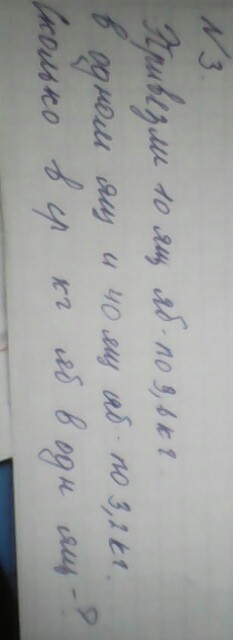 N 3.
Привезли 10 ящ яб. по 3,6 кг
в одном ящ и 40 ящ яб. по 3,2 кг.
Сколько в ср кг яб в одн ящ - ?